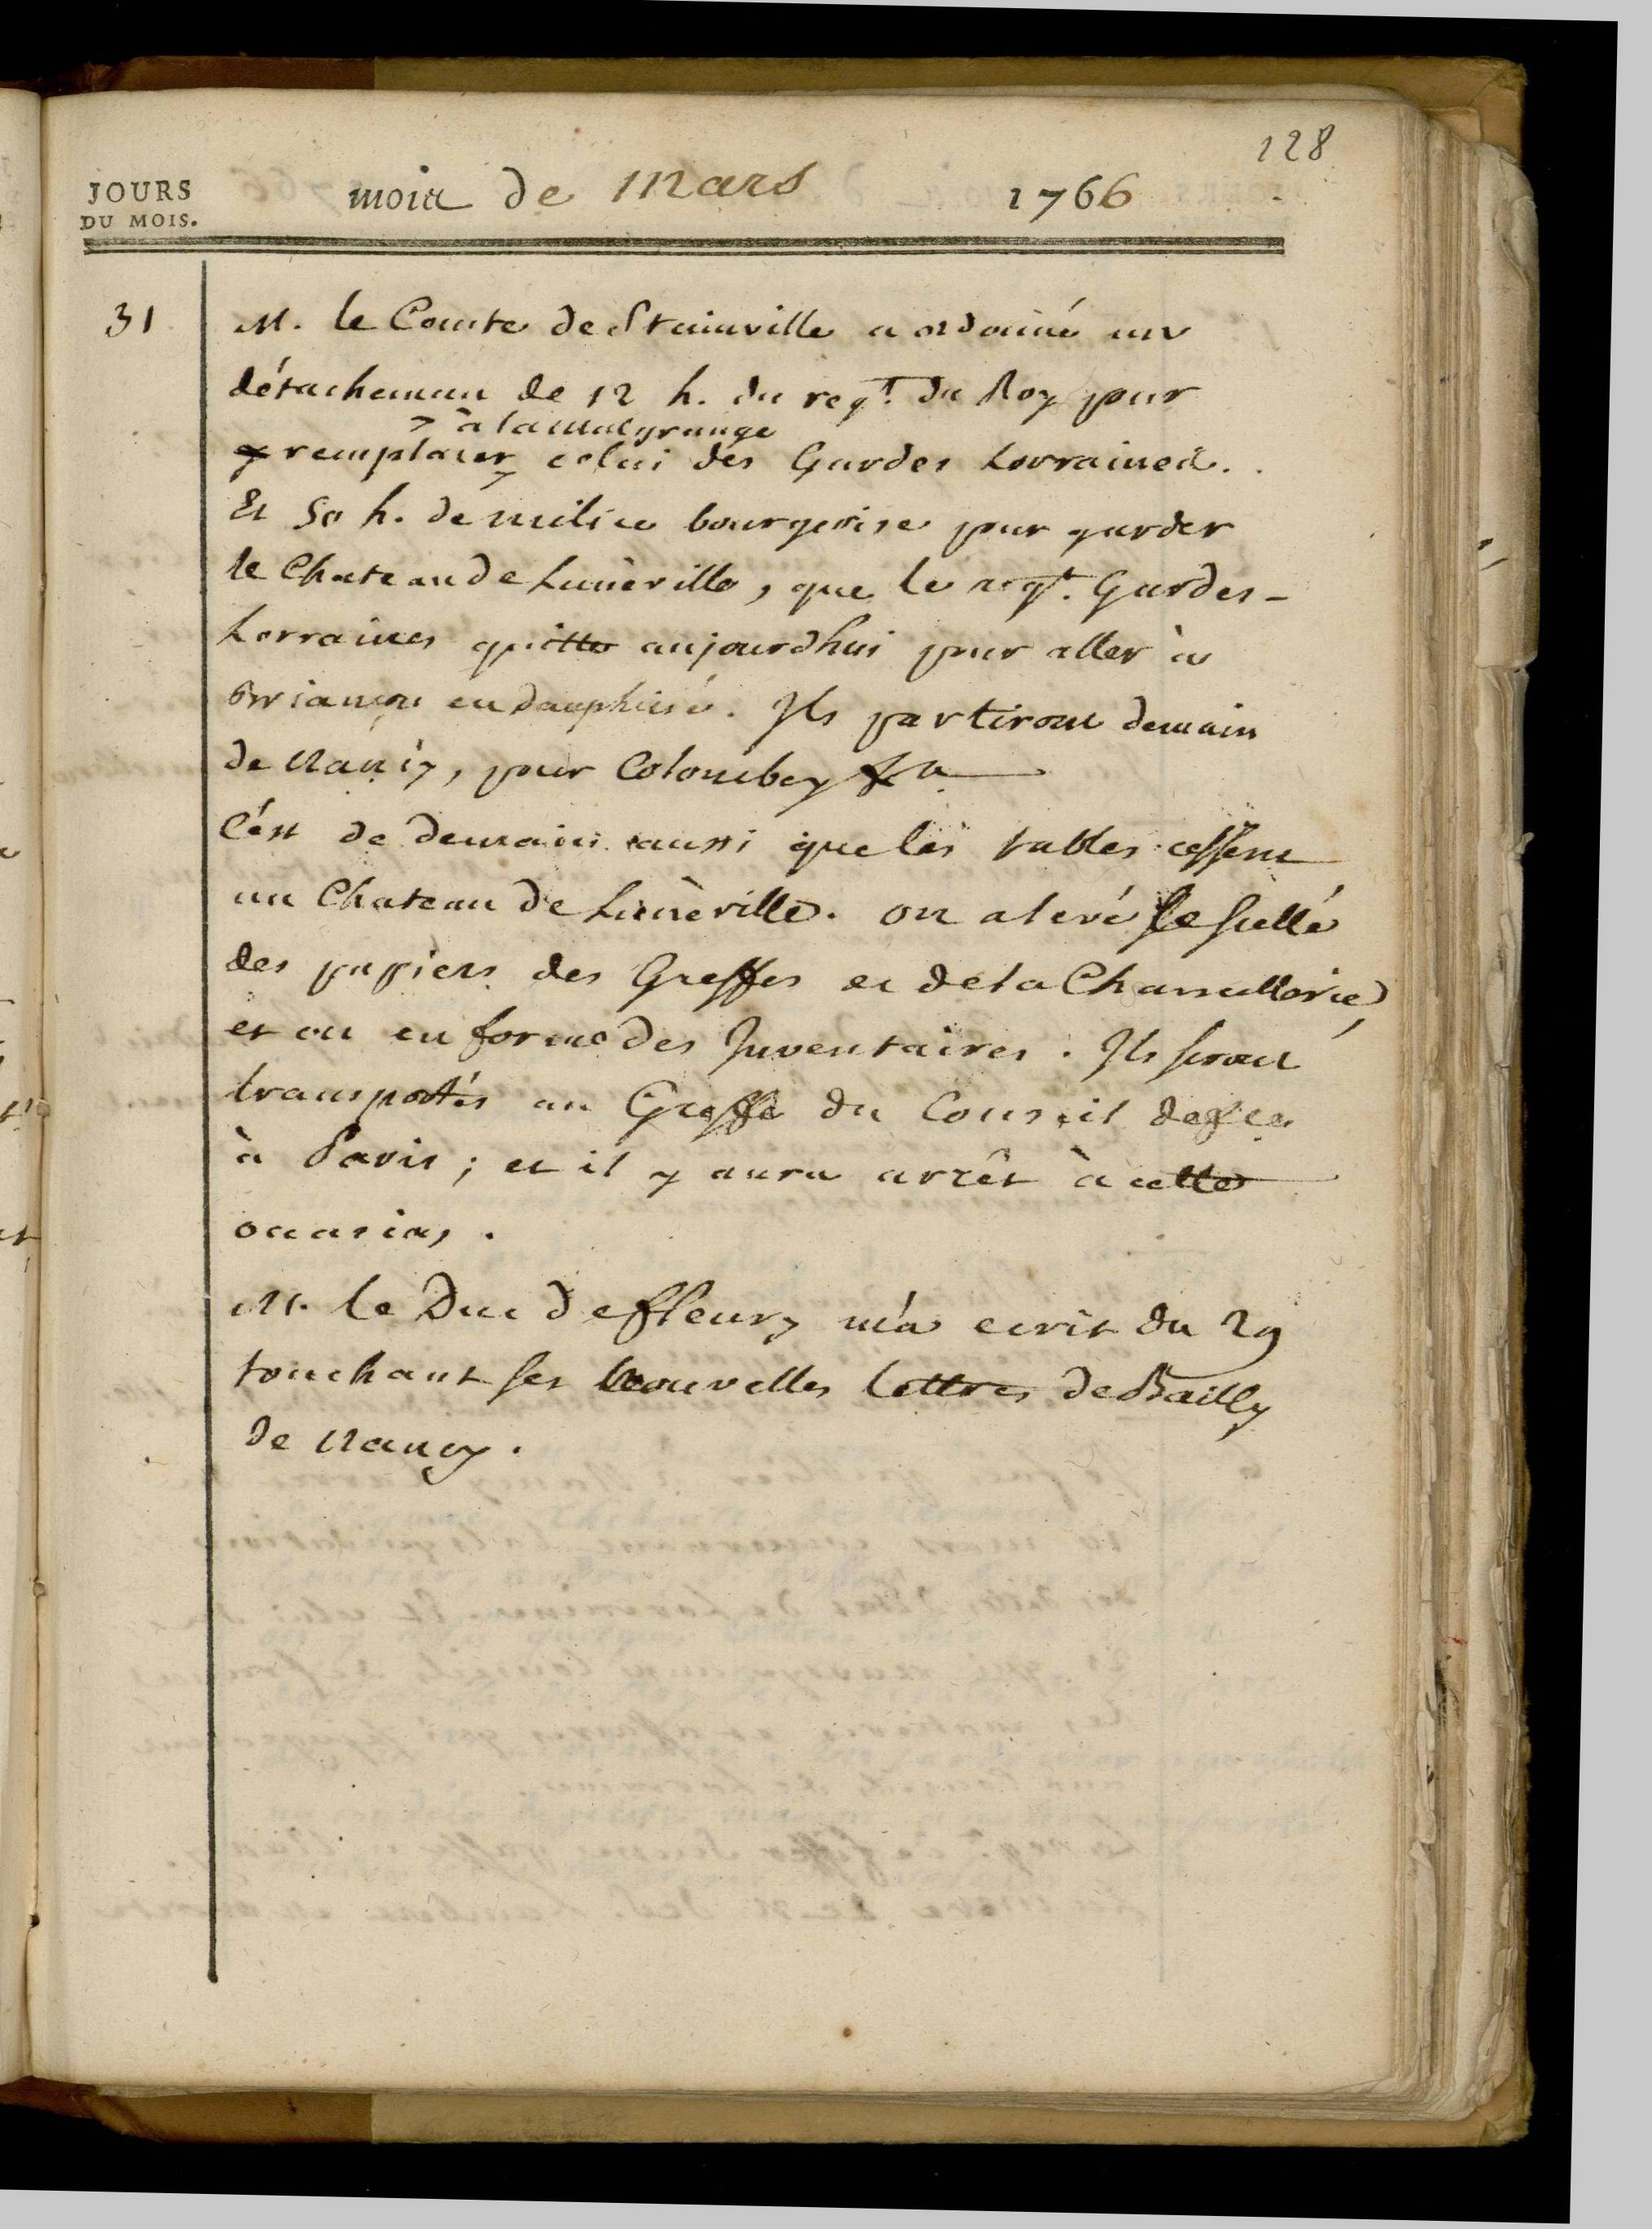 128
JOURS
DU MOIS.
mois de Mars 1766
31
M. le Comte de Stainville a ordonné un
détachement de 12 h. du regt. du Roy pour
à la malgrange
y remplacer celui des Gardes Lorraines.
Et 50 h. de milice bourgeoise pour garder
le Chateau de Lunéville, que le regt. Gardes-
Lorraines quitte aujourdhui pour aller à
Briançon en dauphiné. Ils partiront demain
de Nancy, pour Colombey &a
C'est de demain aussi que les tables cessent
au Chateau de Lunéville. on a levé le scellé
des papiers des Greffes et de la Chancellerie,
et on en forme des Inventaires. Ils seront
transportés au Greffe du Conseil
à Paris ; et il y aura arrêt à cette
occasion.
M. le Duc de fleury m'a ecrit du 29
touchant ses nouvelles lettres de Bailly
de Nancy.